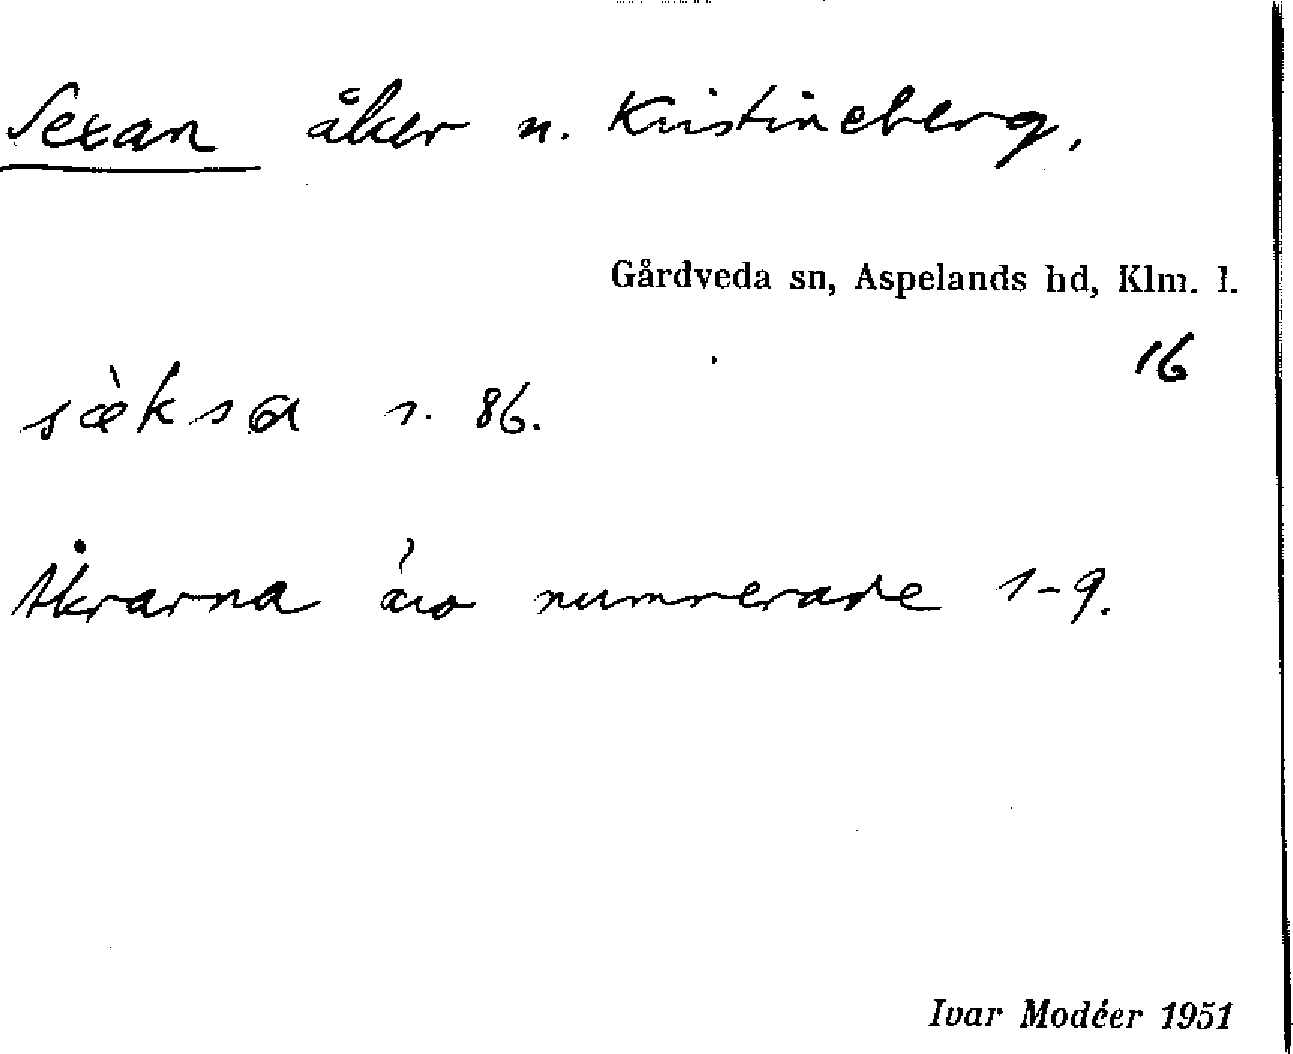 Sexan åker n. Kristineberg,
Gårdveda sn, Aspelands hd, Klm. l.
16
sæ̀ksa s. 86.
Åkrarna äro numrerade 1-9.
Ivar Modéer 1951